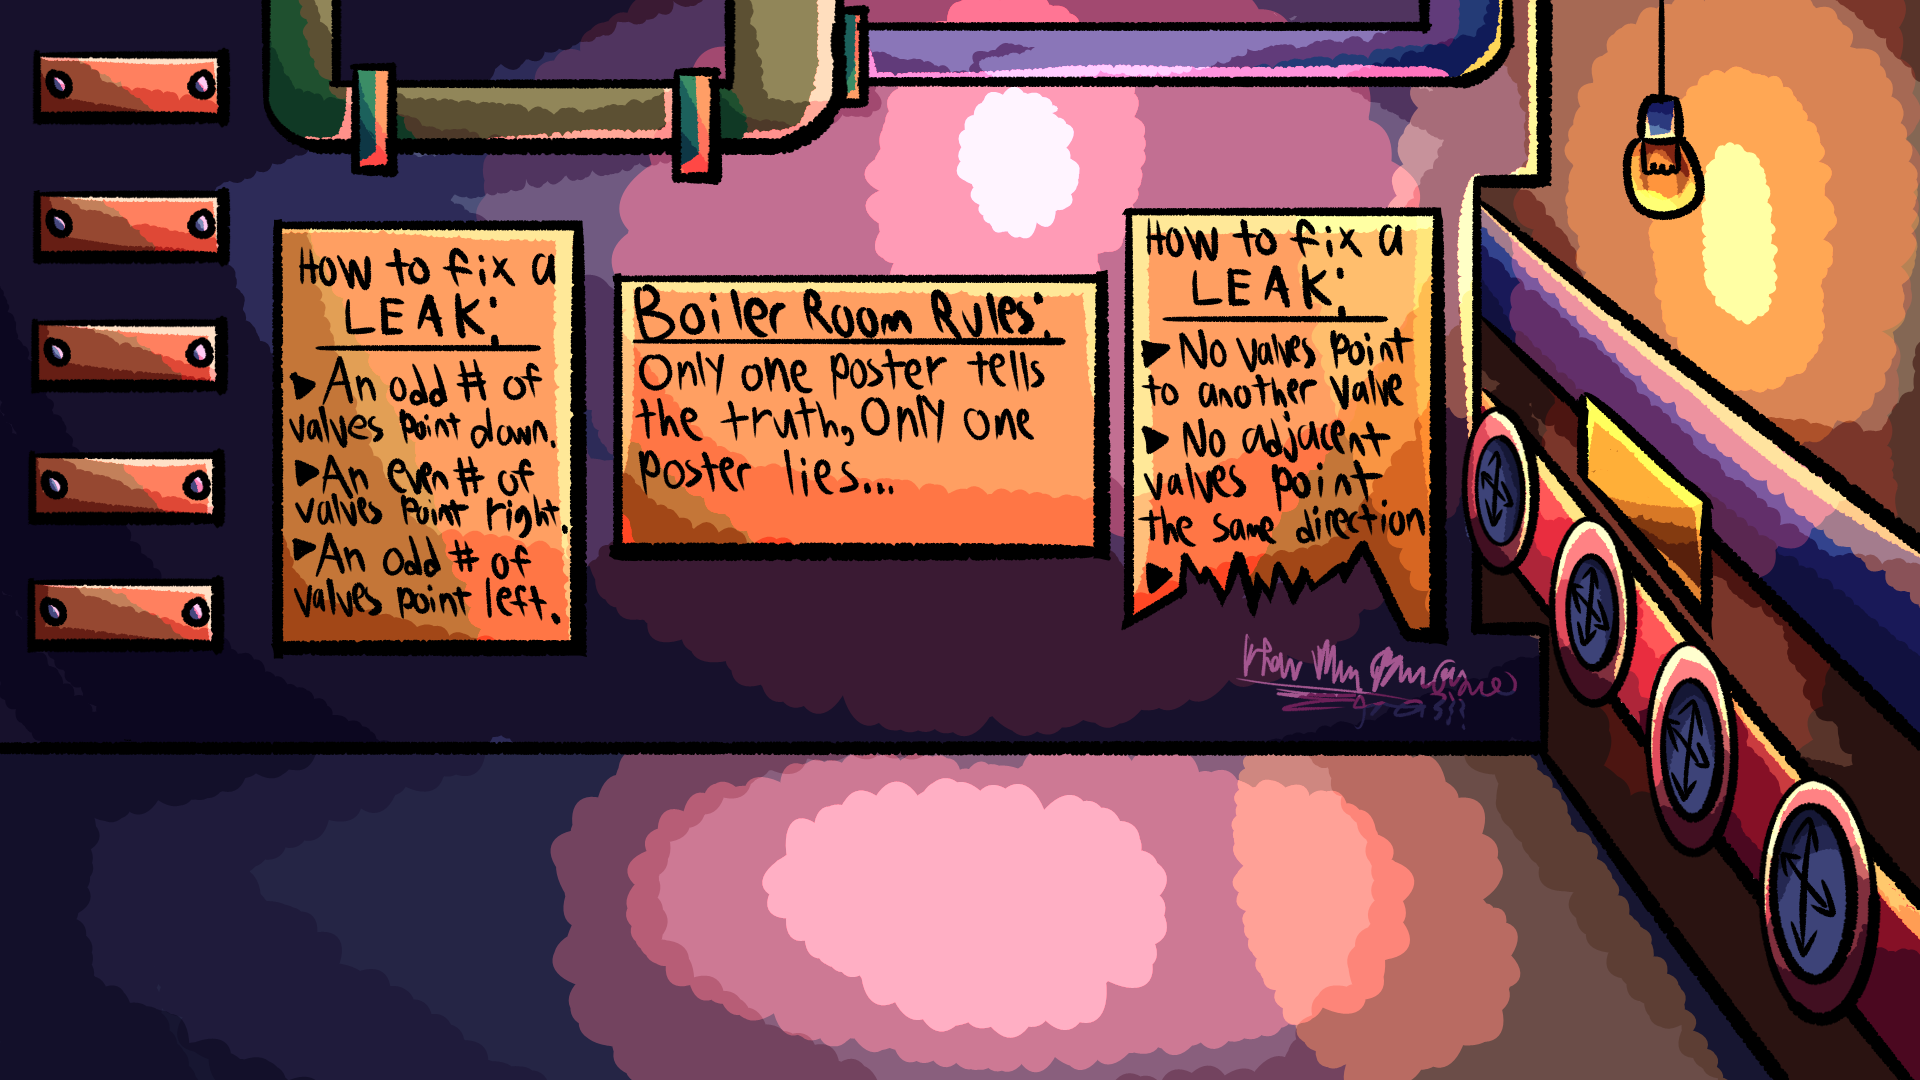 How to fix a
LEAK:
►An odd # of
valves point down.
►An even # of
valves point right.
►An odd # of
valves point left.
Boiler Room Rules:
Only one poster tells
the truth, Only one
poster lies...
How to fix a
LEAK:
► No valves point
to another valve
► No adjacent
valves point
the same direction
►